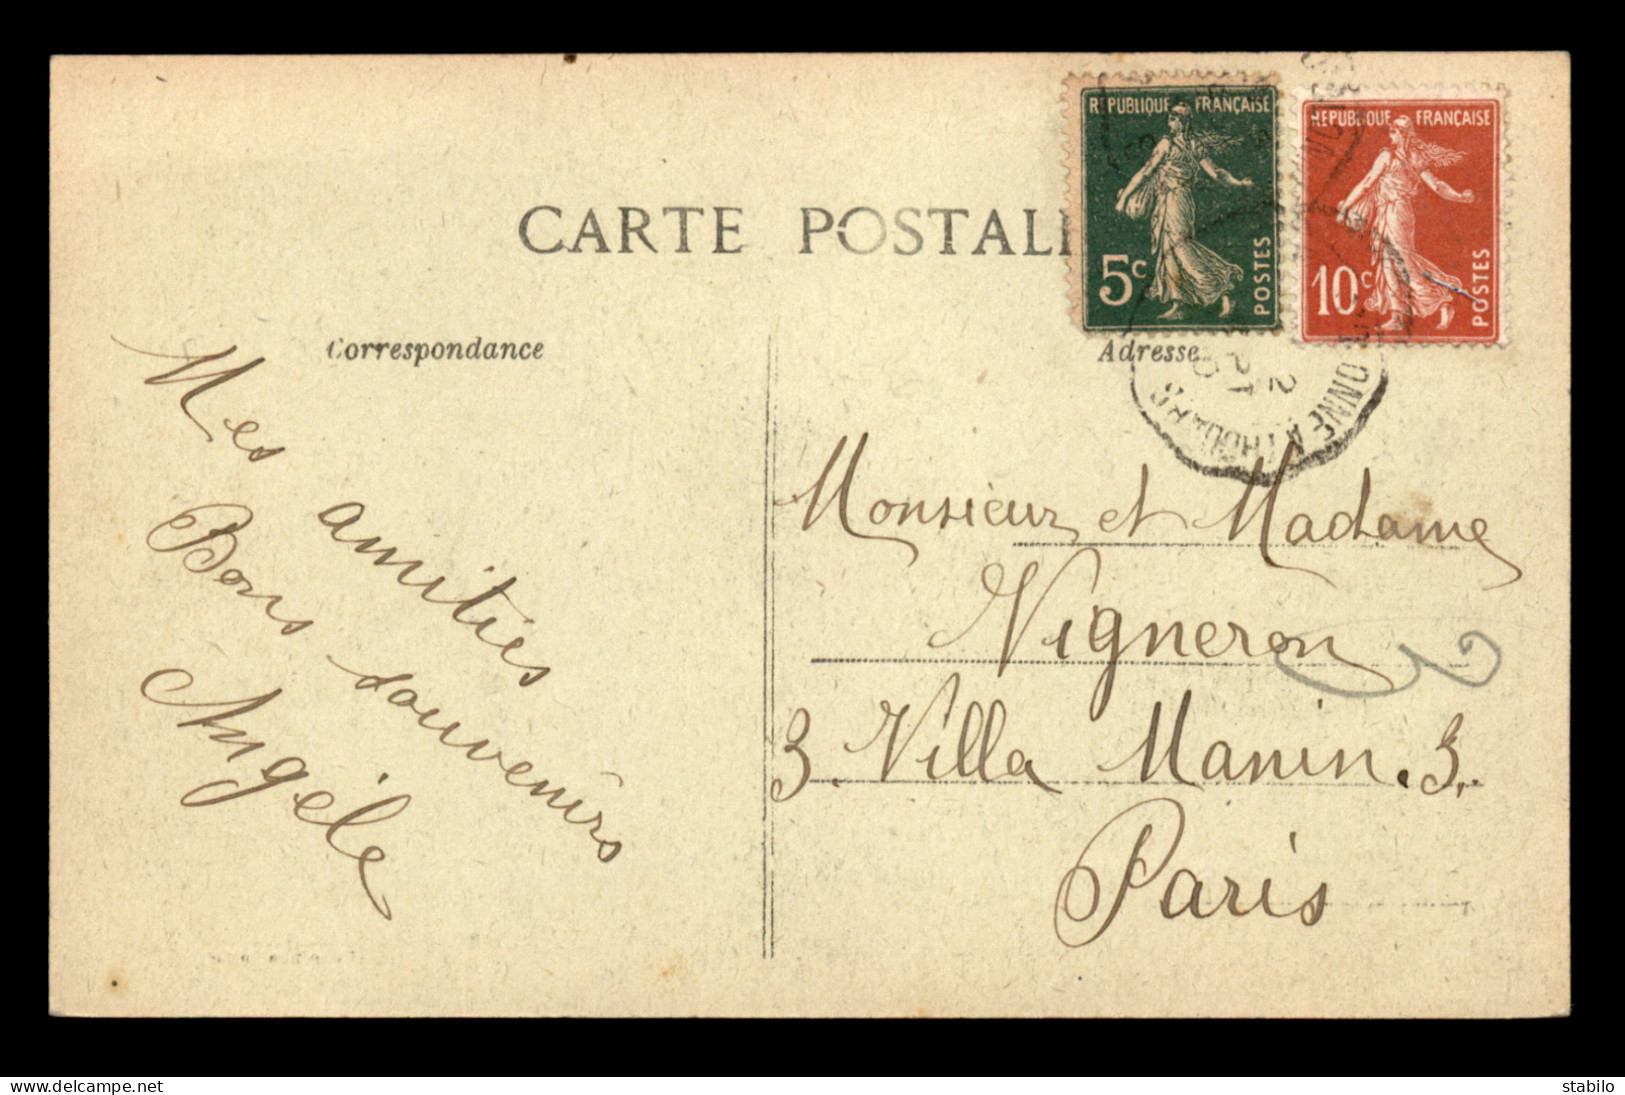 CARTE POSTALE
REPUBLIQUE FRANÇAISE
5c
POSTES
REPUBLIQUE FRANÇAISE
10c
POSTES
Correspondance
Adresse
ONNE A THOUARS
2
21
Mes amitiés
Bons souvenirs
Angèle
Monsieur et Madame
Vigneron
3. Villa Manin. 3.
Paris
delcampe.net
stabilo